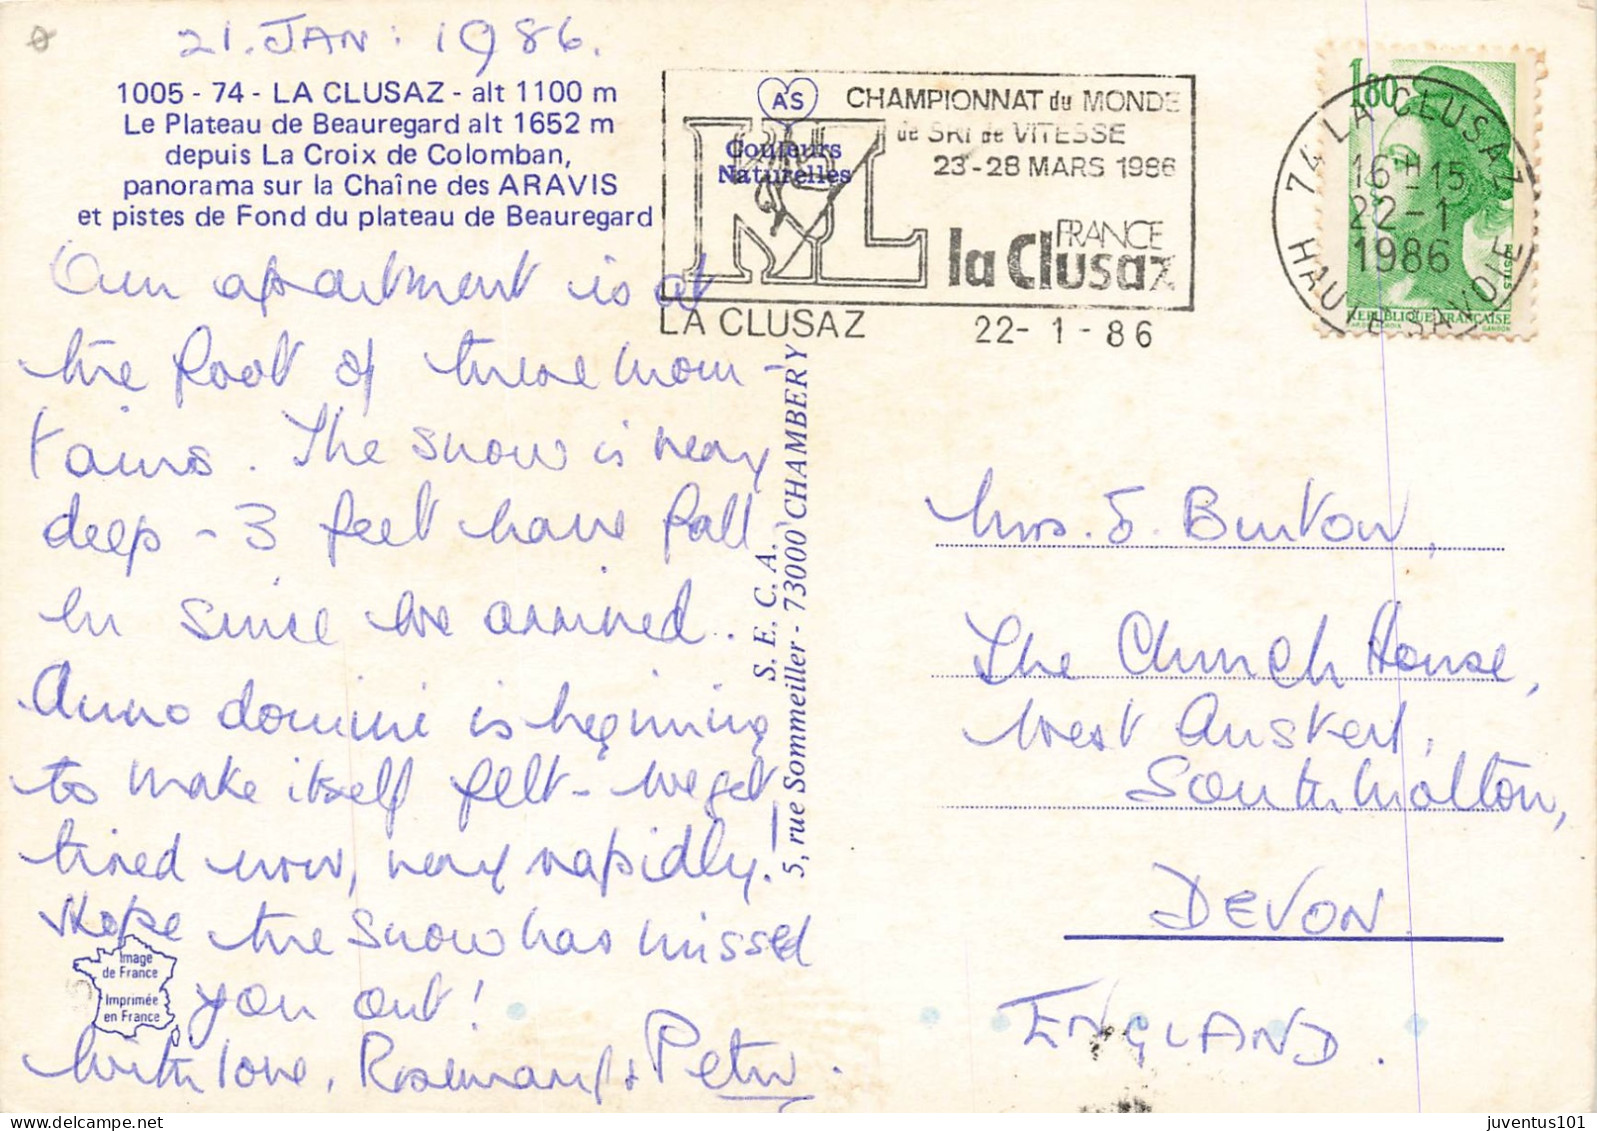 21. JAN: 1986.
1005 - 74 - LA CLUSAZ - alt 1100 m
Le Plateau de Beauregard alt 1652 m
depuis La Croix de Colomban,
panorama sur la Chaîne des ARAVIS
et pistes de Fond du plateau de Beauregard
AS
Couleurs
Naturelles
CHAMPIONNAT du MONDE
de SKI de VITESSE
23-28 MARS 1986
KL
FRANCE
la Clusaz
LA CLUSAZ 22-1-86
74 LA CLUSAZ
16H15
22-1
1986
HAUTE SAVOIE
1,80
POSTES
REPUBLIQUE FRANÇAISE
GANDON
Our apartment is at
the foot of these moun-
tains. The snow is very
deep - 3 feet have fall
en since we arrived.
Anno domini is beginning
to make itself felt - we get
tired now, very rapidly!
Hope the snow has missed
you out!
With love, Rosemary & Peter.
S. E. C. A.
5, rue Sommeiller - 73000 CHAMBERY
Image
de France
Imprimée
en France
Mrs. J. Burton,
The Church House,
West Anstey,
South Molton,
DEVON
ENGLAND.
juventus101